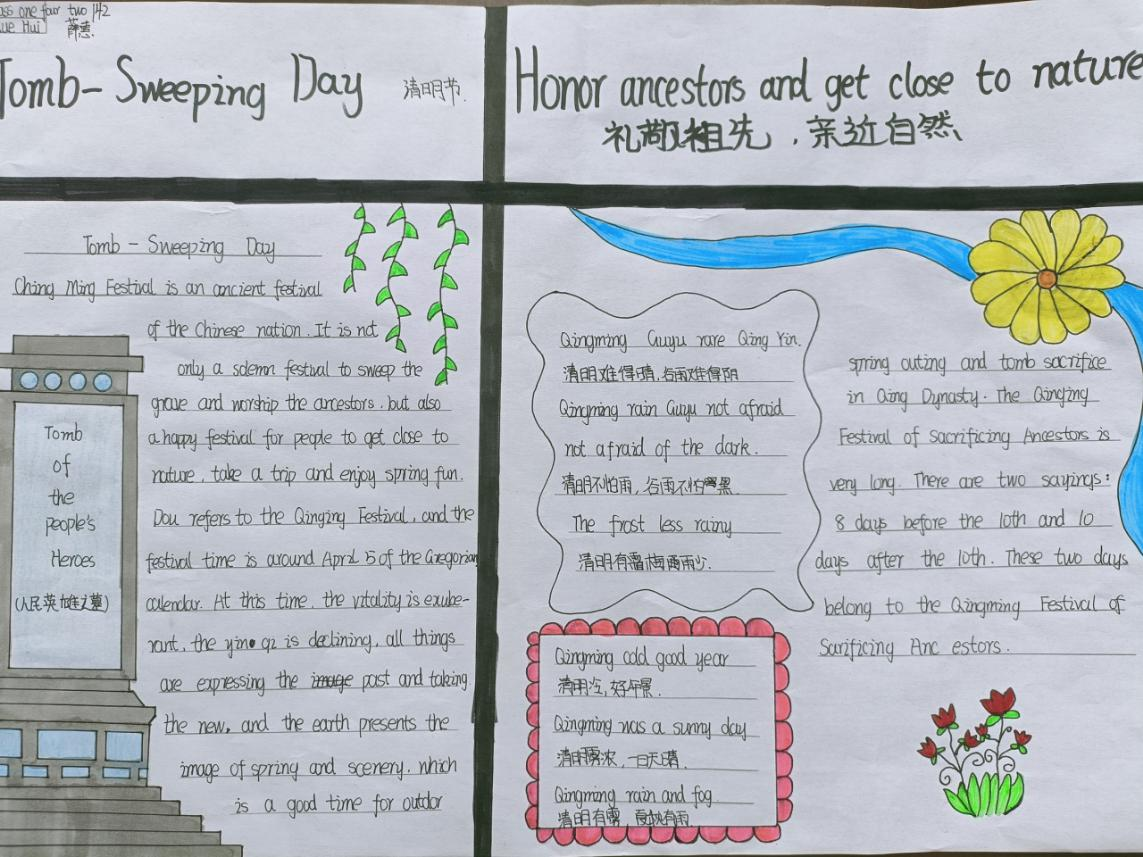 ass one four two 142
ue Hui
薛惠
Tomb-Sweeping Day 清明节.
Honor ancestors and get close to nature
礼敬祖先，亲近自然
Tomb - Sweeping Day
Ching Ming Festival is an ancient festival
of the Chinese nation. It is not
only a solemn festival to sweep the
grave and worship the ancestors, but also
a happy festival for people to get close to
nature, take a trip and enjoy spring fun.
Dou refers to the Qinging Festival, and the
festival time is around April 5 of the Gregorian
calendar. At this time, the vitality is exube-
rant, the yin qi is declining, all things
are expressing the image past and taking
the new, and the earth presents the
image of spring and scenery, which
is a good time for outdor
Tomb
of
the
people's
Heroes
(人民英雄之墓)
Qingming Guyu rare Qing Yin.
清明难得晴,谷雨难得阴
Qingming rain Guyu not afraid
not afraid of the dark.
清明不怕雨,谷雨不怕黑.
The frost less rainy
清明有霜梅雨少.
Qingming cold good year
清明冷,好年景.
Qingming was a sunny day
清明雾浓,一日天晴.
Qingming rain and fog.
清明有雾,夏秋有雨
spring outing and tomb sacrifice
in Qing Dynasty. The Qingjing
Festival of Sacrificing Ancestors is
very long. There are two sayings:
8 days before the 10th and 10
days after the 10th. These two days
belong to the Qingming Festival of
Sarificing Anc estors.